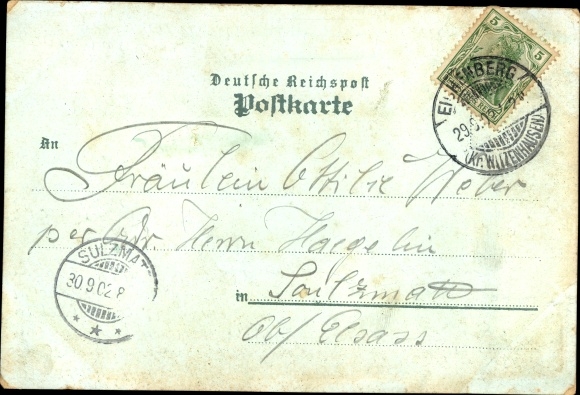 5 5
EICHENBERG
29.9.
(Kr. WITZENHAUSEN)
Deutsche Reichspost
Postkarte
An
Fräulein Ottilie Weber
per Adr. Herrn Haegelin
SULZMAT
30 9 02
in Soulzmatt
Ob/ Elsass